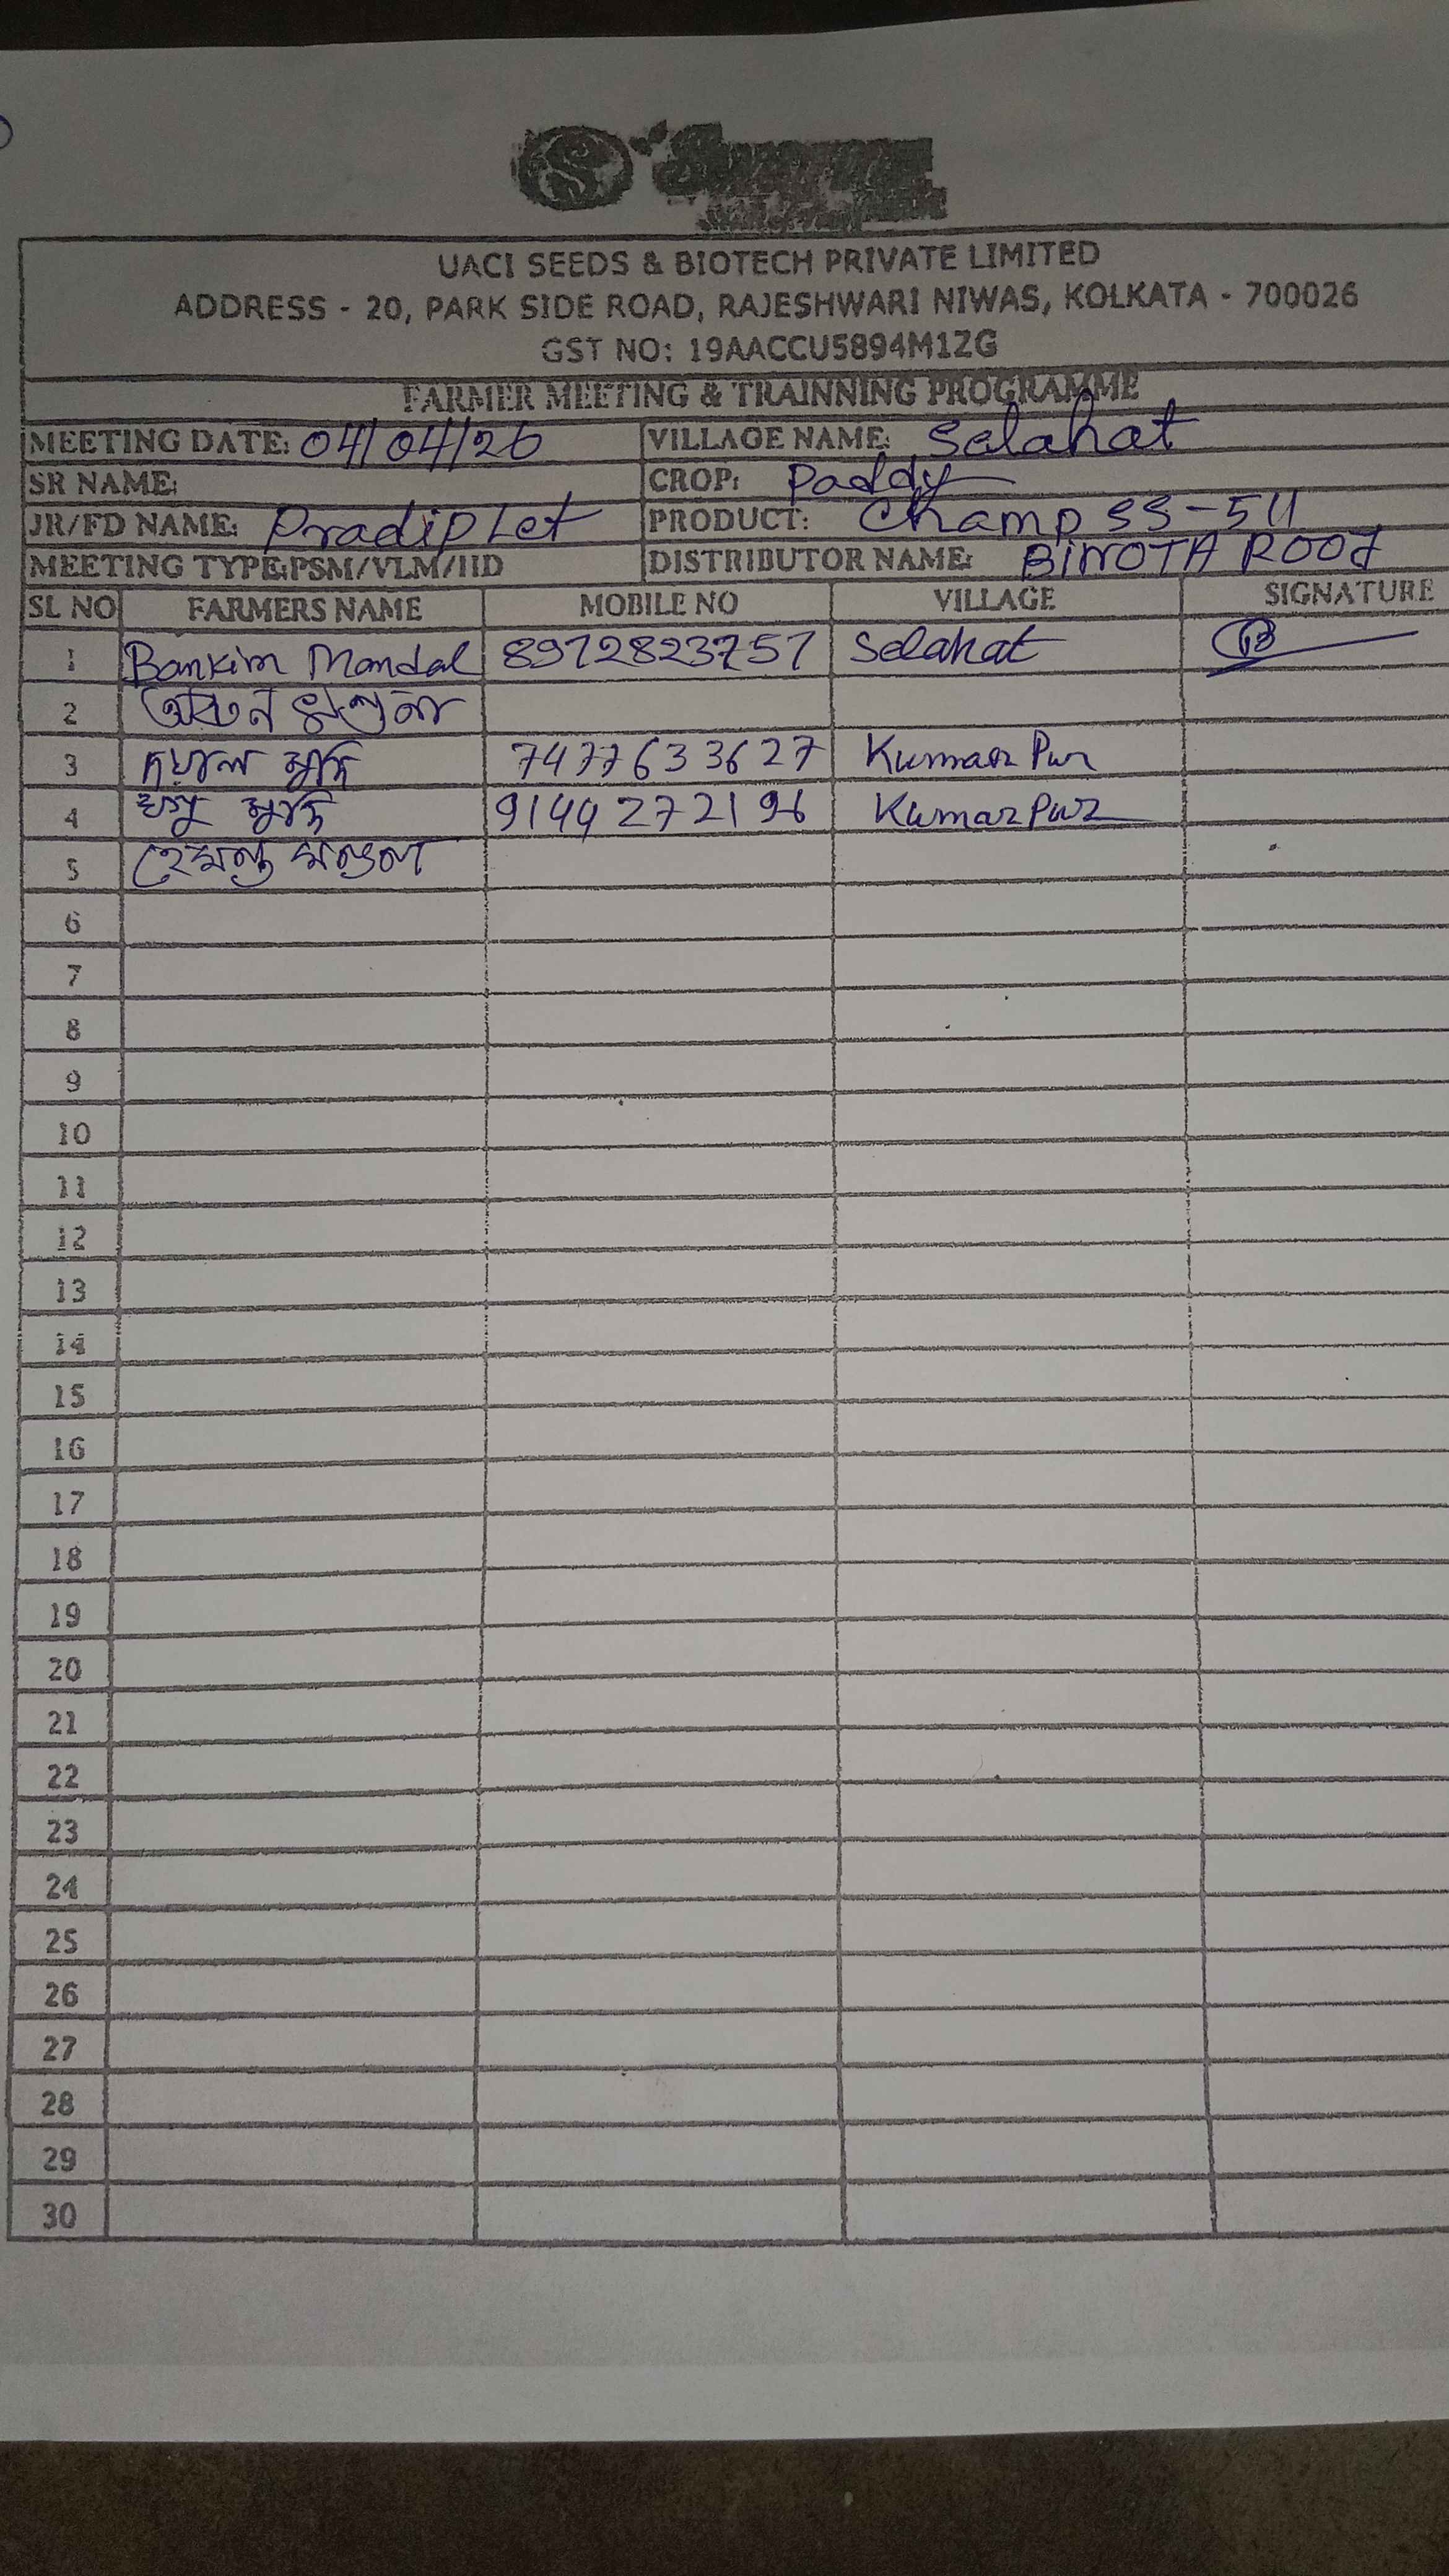 UACI SEEDS & BIOTECH PRIVATE LIMITED
ADDRESS - 20, PARK SIDE ROAD, RAJESHWARI NIWAS, KOLKATA - 700026
GST NO: 19AACCU5894M1ZG
FARMER MEETING & TRAINNING PROGRAMME
MEETING DATE: 04/04/26 VILLAGE NAME: Selahat
SR NAME: CROP: Paddy
JR/FD NAME: Pradip Let PRODUCT: Champ SS-511
MEETING TYPE:PSM/VLM/IID DISTRIBUTOR NAME: BINOTA ROOJ
SL NO FARMERS NAME MOBILE NO VILLAGE SIGNATURE
1 Bankim Mandal 8972823757 Selahat
2
3 দয়াল মুদি 7477633627 Kumar Pur
4 মুদি 9144272196 Kumar Pur
5 হেমন্ত মণ্ডল
6
7
8
9
10
11
12
13
14
15
16
17
18
19
20
21
22
23
24
25
26
27
28
29
30